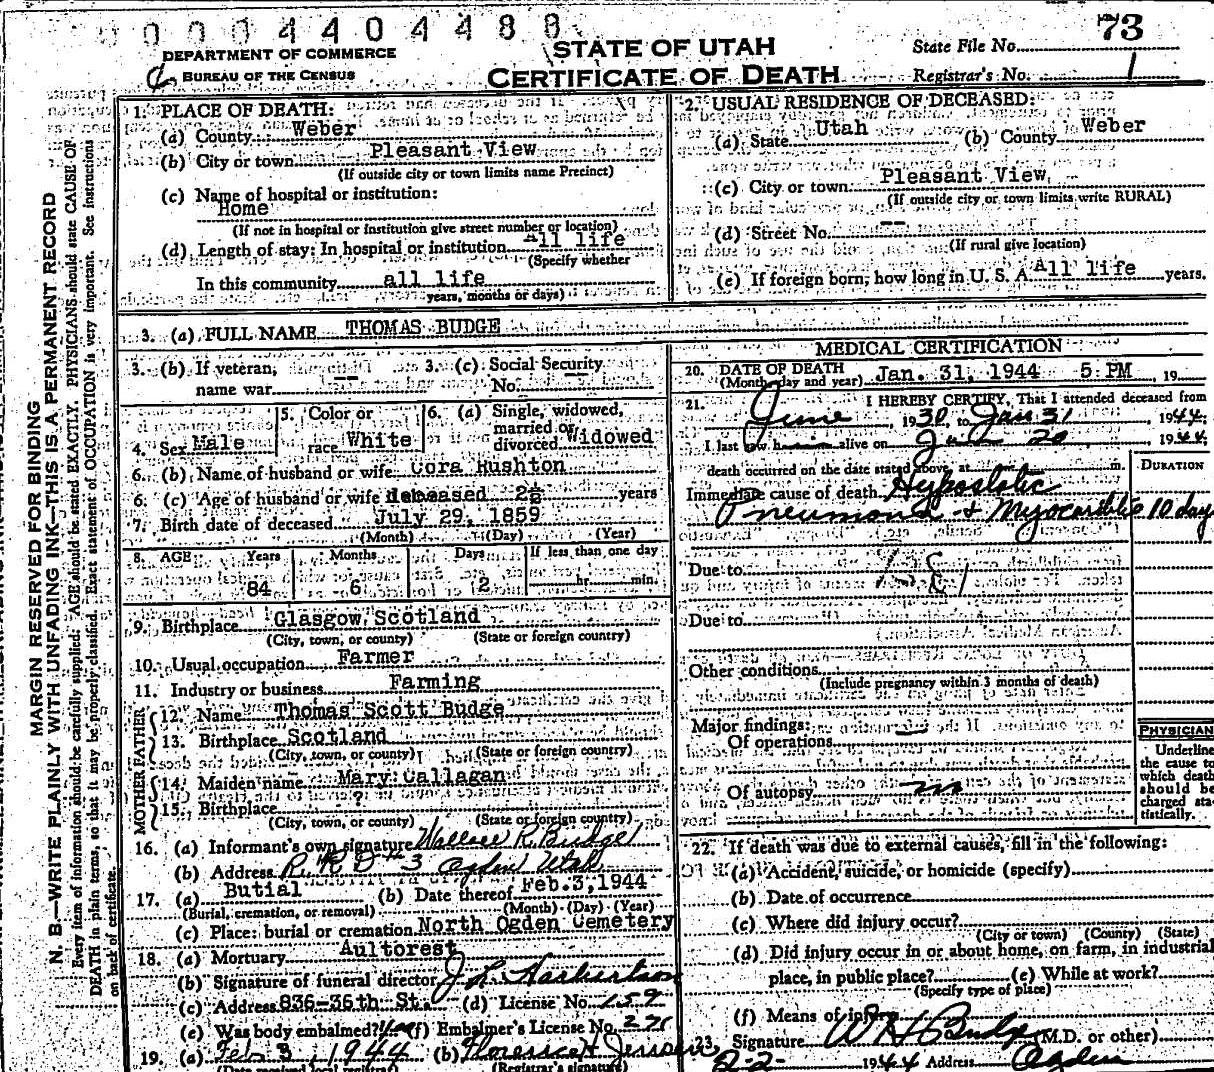 0004404488
DEPARTMENT OF COMMERCE
BUREAU OF THE CENSUS
STATE OF UTAH
CERTIFICATE OF DEATH
State File No. 73
Registrar's No. 1
MARGIN RESERVED FOR BINDING
N. B.—WRITE PLAINLY WITH UNFADING INK—THIS IS A PERMANENT RECORD
Every item of information should be carefully supplied. AGE should be stated EXACTLY. PHYSICIANS should state CAUSE OF
DEATH in plain terms, so that it may be properly classified. Exact statement of OCCUPATION is very important. See instructions
on back of certificate.
1. PLACE OF DEATH:
(a) County Weber
(b) City or town Pleasant View
(If outside city or town limits name Precinct)
(c) Name of hospital or institution:
Home
(If not in hospital or institution give street number or location)
(d) Length of stay: In hospital or institution All life
(Specify whether
In this community all life
years, months or days)
2. USUAL RESIDENCE OF DECEASED:
(a) State Utah (b) County Weber
(c) City or town Pleasant View
(If outside city or town limits write RURAL)
(d) Street No. --
(If rural give location)
(e) If foreign born, how long in U. S. A. All life years.
3. (a) FULL NAME THOMAS BUDGE
3. (b) If veteran, name war -- 3. (c) Social Security No. --
4. Sex Male 5. Color or race White 6. (a) Single, widowed, married or divorced Widowed
6. (b) Name of husband or wife Cora Rushton
6. (c) Age of husband or wife deceased years
7. Birth date of deceased July 29, 1859
(Month) (Day) (Year)
8. AGE Years Months Days If less than one day
84 6 2 hr. min.
9. Birthplace Glasgow Scotland
(City, town, or county) (State or foreign country)
10. Usual occupation Farmer
11. Industry or business Farming
FATHER
12. Name Thomas Scott Budge
13. Birthplace Scotland
(City, town, or county) (State or foreign country)
MOTHER
14. Maiden name Mary Callagan
15. Birthplace ?
(City, town, or county) (State or foreign country)
16. (a) Informant's own signature Wallace R. Budge
(b) Address R.F.D #3 Ogden Utah
17. (a) Butial (b) Date thereof Feb.3,1944
(Burial, cremation, or removal) (Month) (Day) (Year)
(c) Place: burial or cremation North Ogden Cemetery
18. (a) Mortuary Aultorest
(b) Signature of funeral director
(c) Address 836-36th St. (d) License No. 159
(e) Was body embalmed? Yes (f) Embalmer's License No. 271
19. (a) Feb 3, 1944 (b) Florence H Jensen
(Date received local registrar) (Registrar's signature)
MEDICAL CERTIFICATION
20. DATE OF DEATH
(Month, day and year) Jan. 31, 1944 5: PM, 19
21. I HEREBY CERTIFY, That I attended deceased from
June, 1930, to Jan 31 1944;
I last saw h alive on 1944;
death occurred on the date stated above, at m. DURATION
Immediate cause of death Hypostatic
Pneumonia & Myocarditis 10 days
Due to
Due to
Other conditions
(Include pregnancy within 3 months of death)
Major findings:
Of operations
Of autopsy no
PHYSICIAN
Underline
the cause to
which death
should be
charged sta-
tistically.
22. If death was due to external causes, fill in the following:
(a) Accident, suicide, or homicide (specify)
(b) Date of occurrence
(c) Where did injury occur?
(City or town) (County) (State)
(d) Did injury occur in or about home, on farm, in industrial
place, in public place? (e) While at work?
(Specify type of place)
(f) Means of injury
23. Signature W H Budge (M.D. or other)
2-2- 1944 Address Ogden